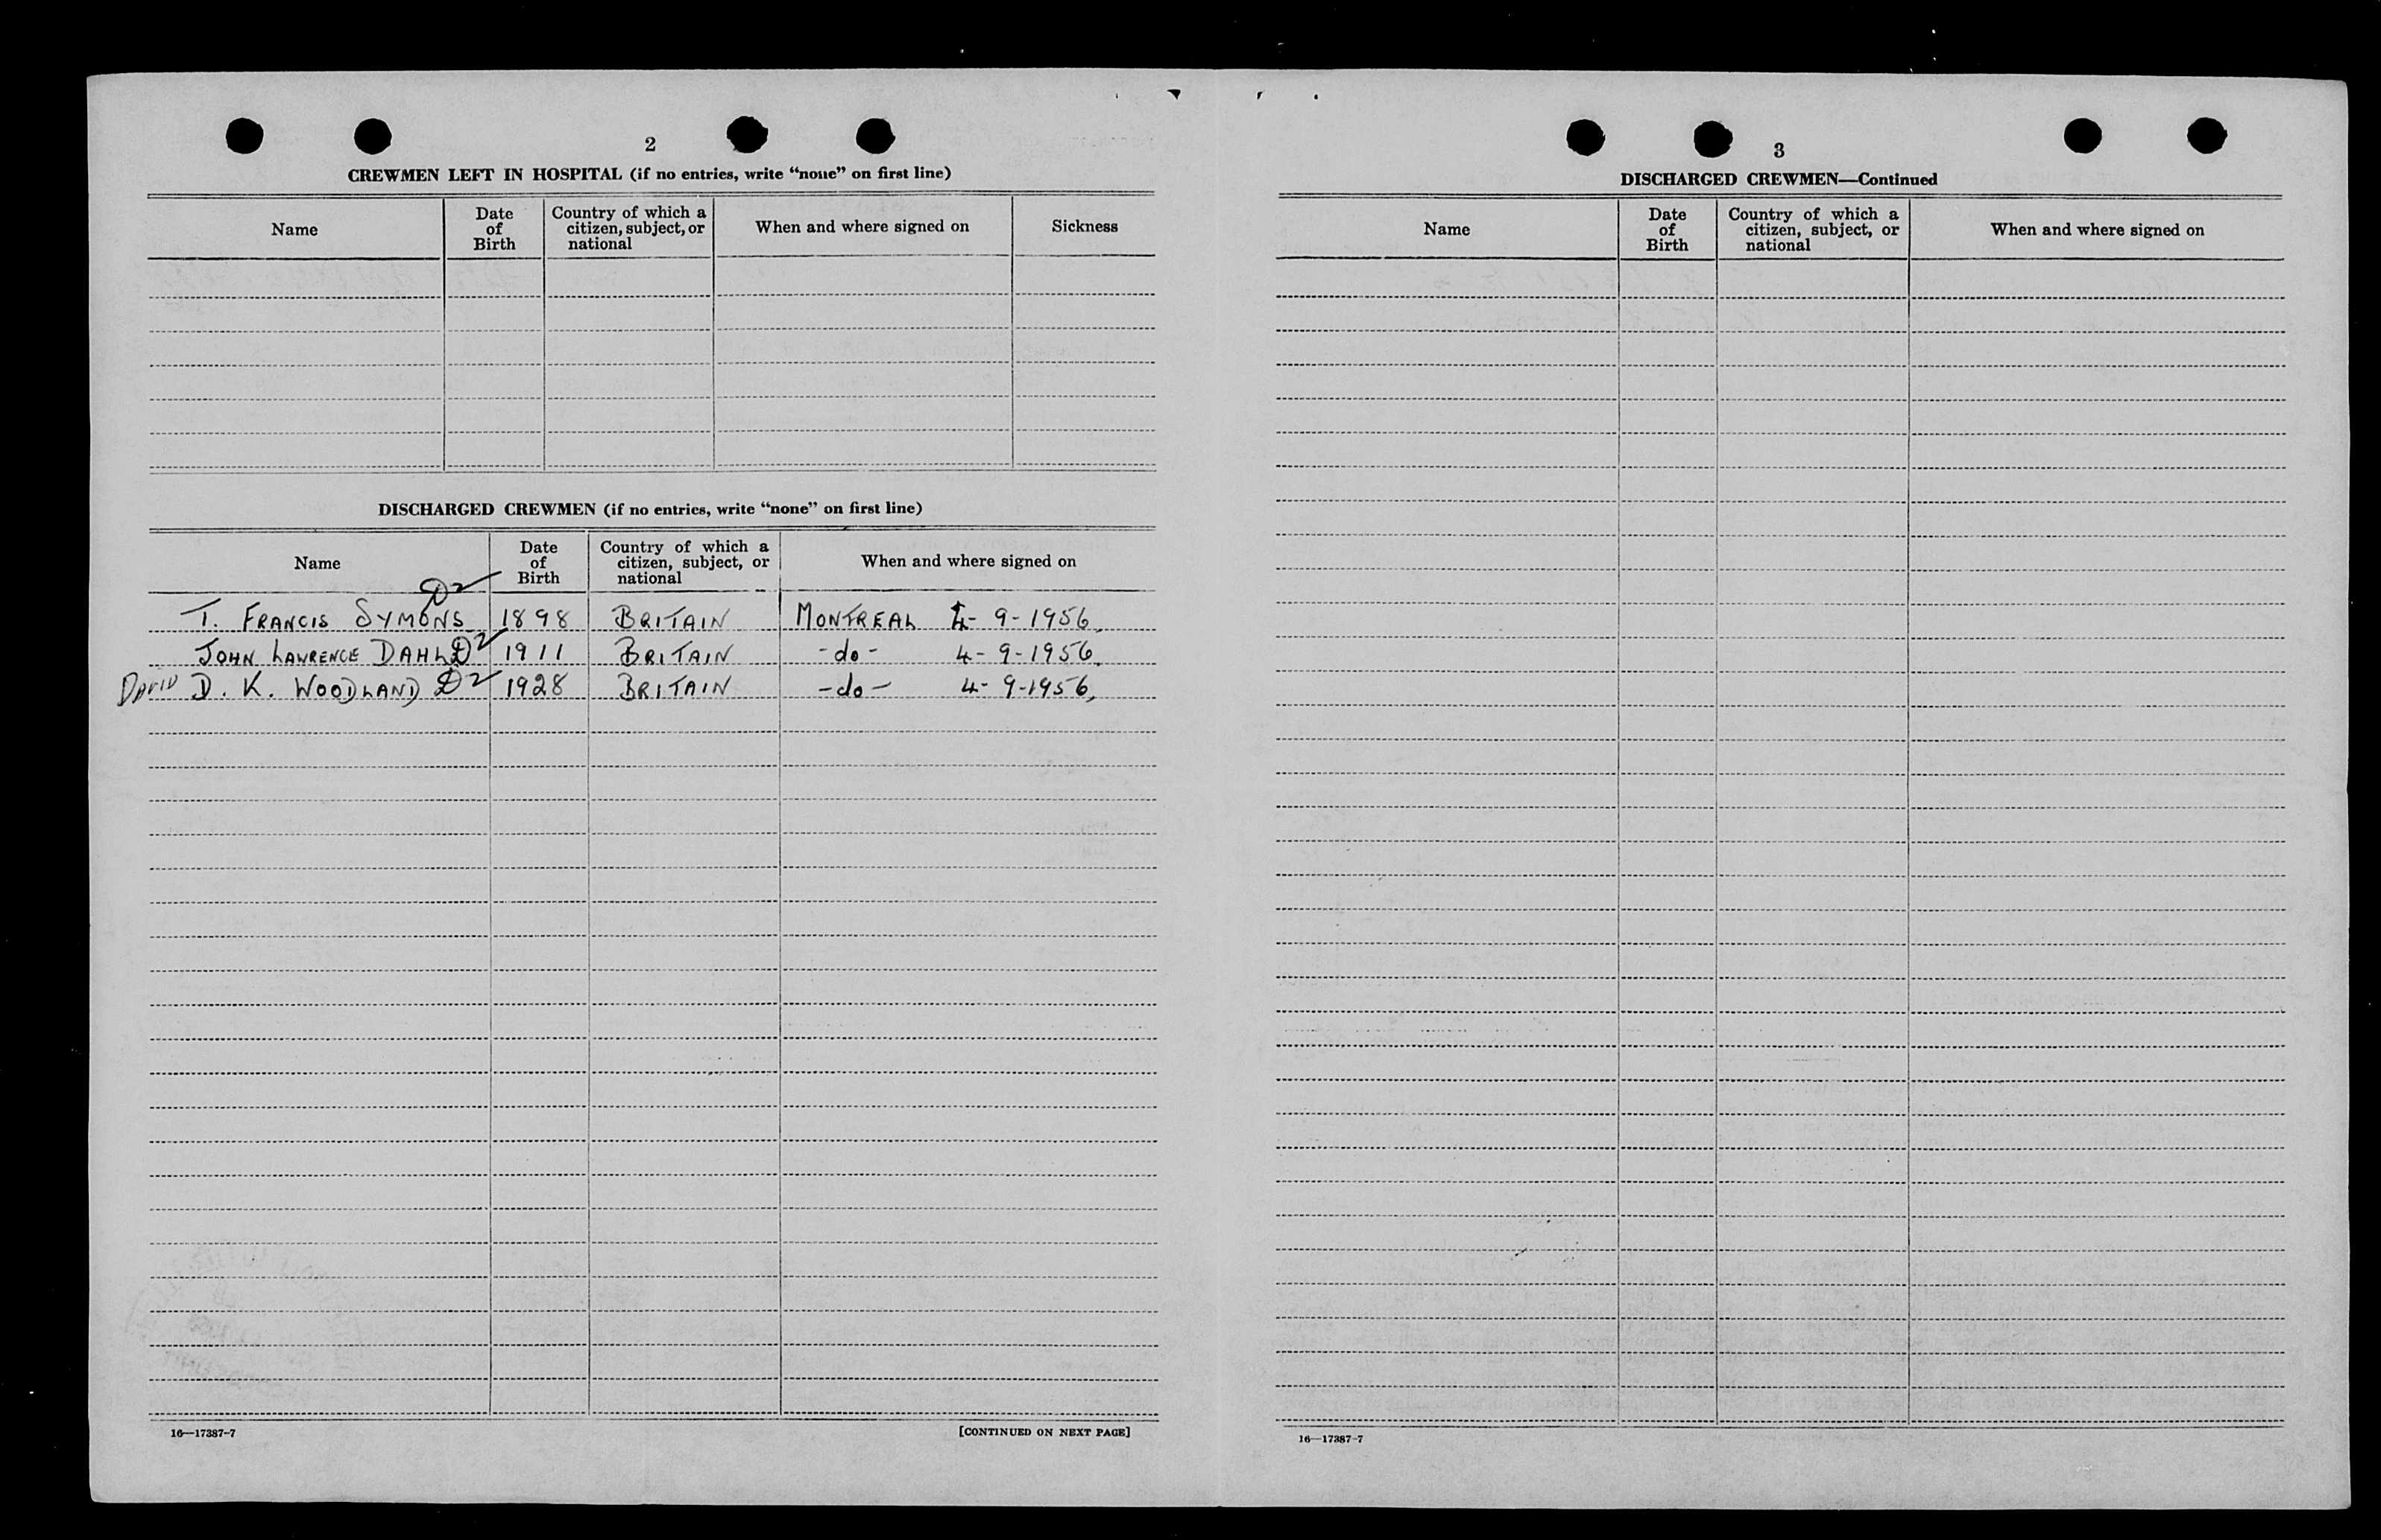 2
CREWMEN LEFT IN HOSPITAL (if no entries, write "none" on first line)
Name
Date of Birth
Country of which a citizen, subject, or national
When and where signed on
Sickness
DISCHARGED CREWMEN (if no entries, write "none" on first line)
Name
Date of Birth
Country of which a citizen, subject, or national
When and where signed on
D2
T. FRANCIS SYMONS 1898 BRITAIN MONTREAL 4-9-1956
JOHN LAWRENCE DAHL D2 1911 BRITAIN -do- 4-9-1956
DAVID D. K. WOODLAND D2 1928 BRITAIN -do- 4-9-1956
16—17387-7
[CONTINUED ON NEXT PAGE]
3
DISCHARGED CREWMEN—Continued
Name
Date of Birth
Country of which a citizen, subject, or national
When and where signed on
16—17387-7